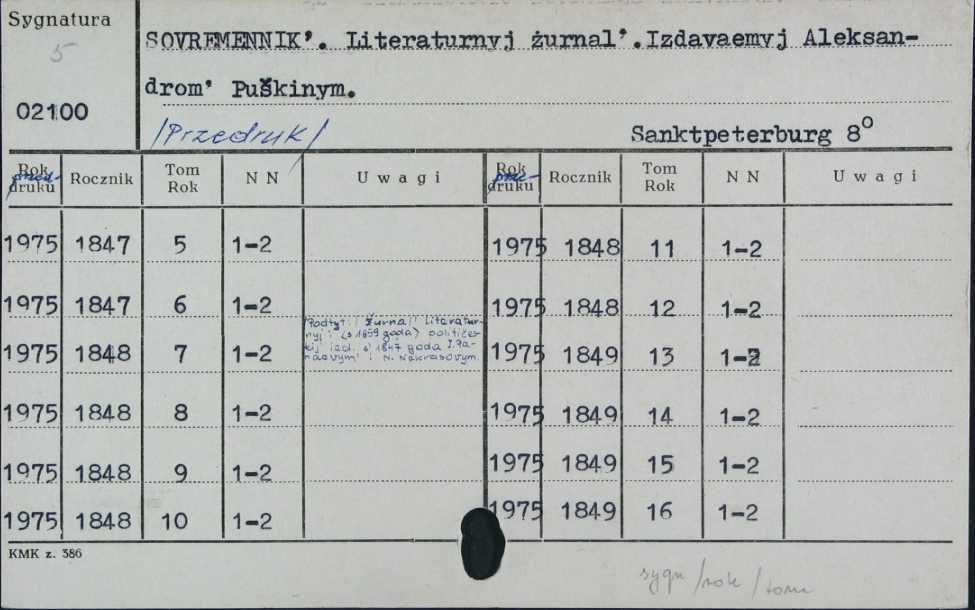 Sygnatura
5
02100
SOVREMENNIK'. Literaturnyj żurnal'.Izdavaemyj Aleksan-
drom' Puškinym.
/Przedruk/
Sanktpeterburg 8°
Rok druku Rocznik Tom Rok N N U w a g i Rok druku Rocznik Tom Rok N N U w a g i
1975 1847 5 1-2 1975 1848 11 1-2
1975 1847 6 1-2 1975 1848 12 1-2
/Podtyt.: Žurnal' literatur-
nyj i (s 1859 goda) političes-
kij izd. s' 1847 goda I. Pa-
naevym' i N. Nekrasovym.
1975 1848 7 1-2 1975 1849 13 1-2
1975 1848 8 1-2 1975 1849 14 1-2
1975 1848 9 1-2 1975 1849 15 1-2
1975 1848 10 1-2 1975 1849 16 1-2
KMK z. 386
sygn/rok/tom